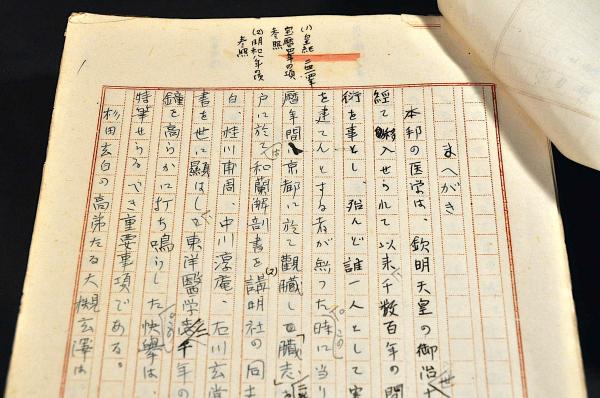 (1) 皇紀二四一四年
宝暦四年の項
参照
(2) 明和八年の項
参照
まへがき
本邦の医学は、欽明天皇の御治世
経て輸入せられて以来千数百年の間
衍を事とし、殆んど誰一人として実
を建てんとする者が無つた時に当り
暦年間京都に於て観臓し「臓志」
戸に於ては和蘭解剖書を講明社の同士
白、桂川甫周、中川淳庵、石川玄常
書を世に顕はし、東洋醫学 千年の
鐘を高らかに打ち鳴らしたこの快擧は、
特筆せらるべき重要事項である。
杉田玄白の高弟たる大槻玄澤は